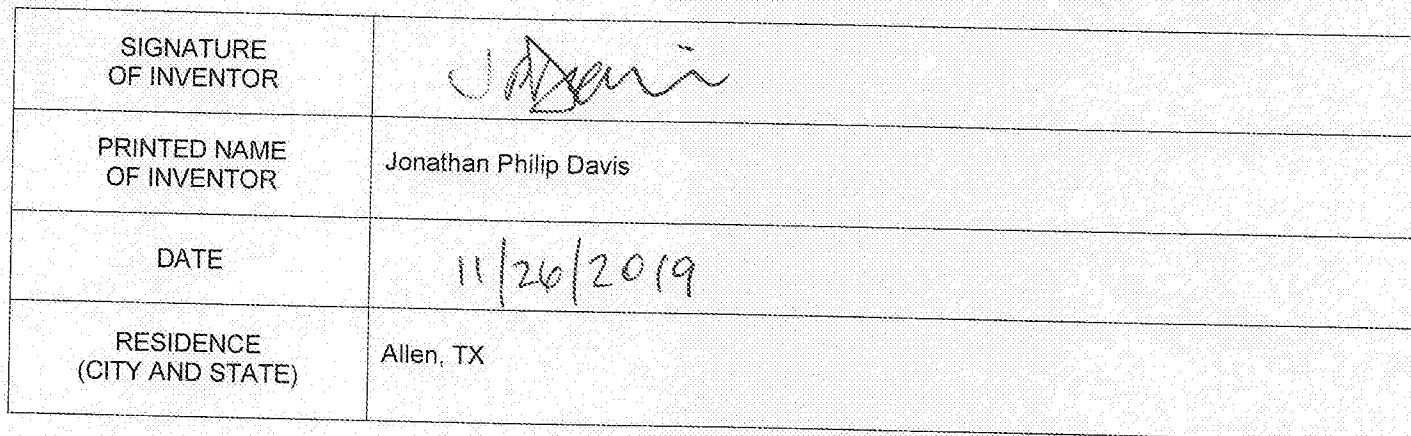 SIGNATURE
OF INVENTOR
JPDavis
PRINTED NAME
OF INVENTOR
Jonathan Philip Davis
DATE
11/26/2019
RESIDENCE
(CITY AND STATE)
Allen, TX